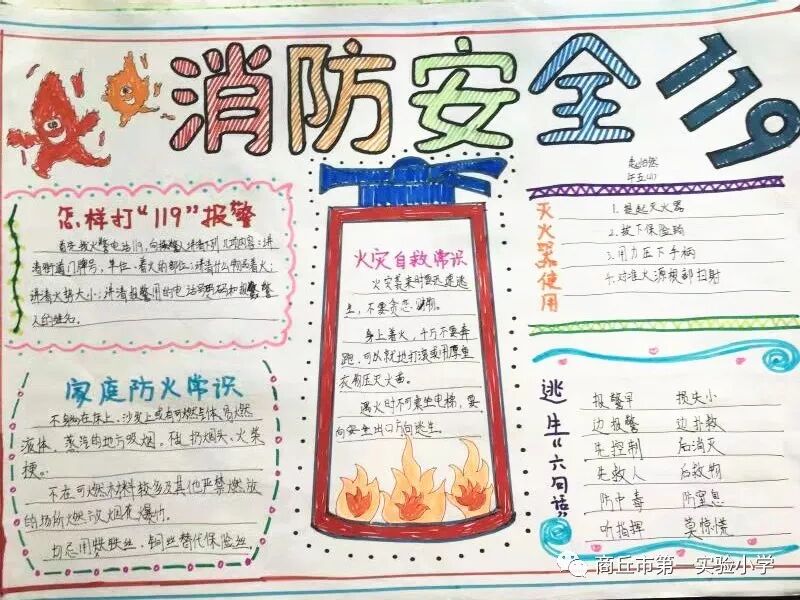 消防安全
119
怎样打“119”报警
首先拨火警电话119,向接警人讲清下列几项内容:讲
清街道门牌号,单位、着火的部位;讲清什么物品着火;
讲清火势大小;讲清报警用的电话号码和报警
人的姓名。
家庭防火常识
不躺在床上、沙发上或有可燃气体易燃
液体、蒸汽的地方吸烟。乱扔烟头、火柴
梗。
不在可燃材料较多及其他严禁燃放
的场所燃放烟花爆竹。
切忌用铁丝、铜丝替代保险丝。
火灾自救常识
火灾袭来时要迅速逃
生,不要贪恋财物。
身上着火,千万不要奔
跑,可以就地打滚或用厚重
衣物压灭火苗。
遇火时不可乘坐电梯,要
向安全出口方向逃生。
灭火器使用
1.提起灭火器
2.拔下保险销
3.用力压下手柄
4.对准火源根部扫射
逃生“六句话”
报警早 损失小
边报警 边扑救
先控制 后消灭
先救人 后救物
防中毒 防窒息
听指挥 莫惊慌
商丘市第一实验小学